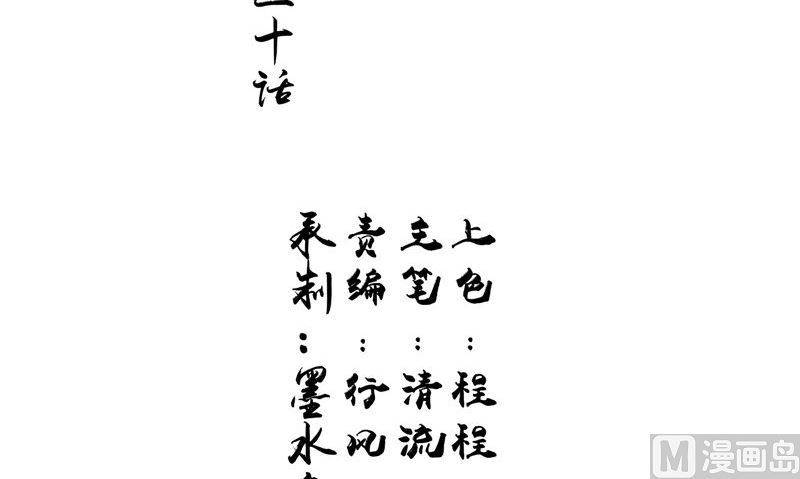 十话
上色：程程
主笔：清流
责编：行风
承制：墨水
漫画岛